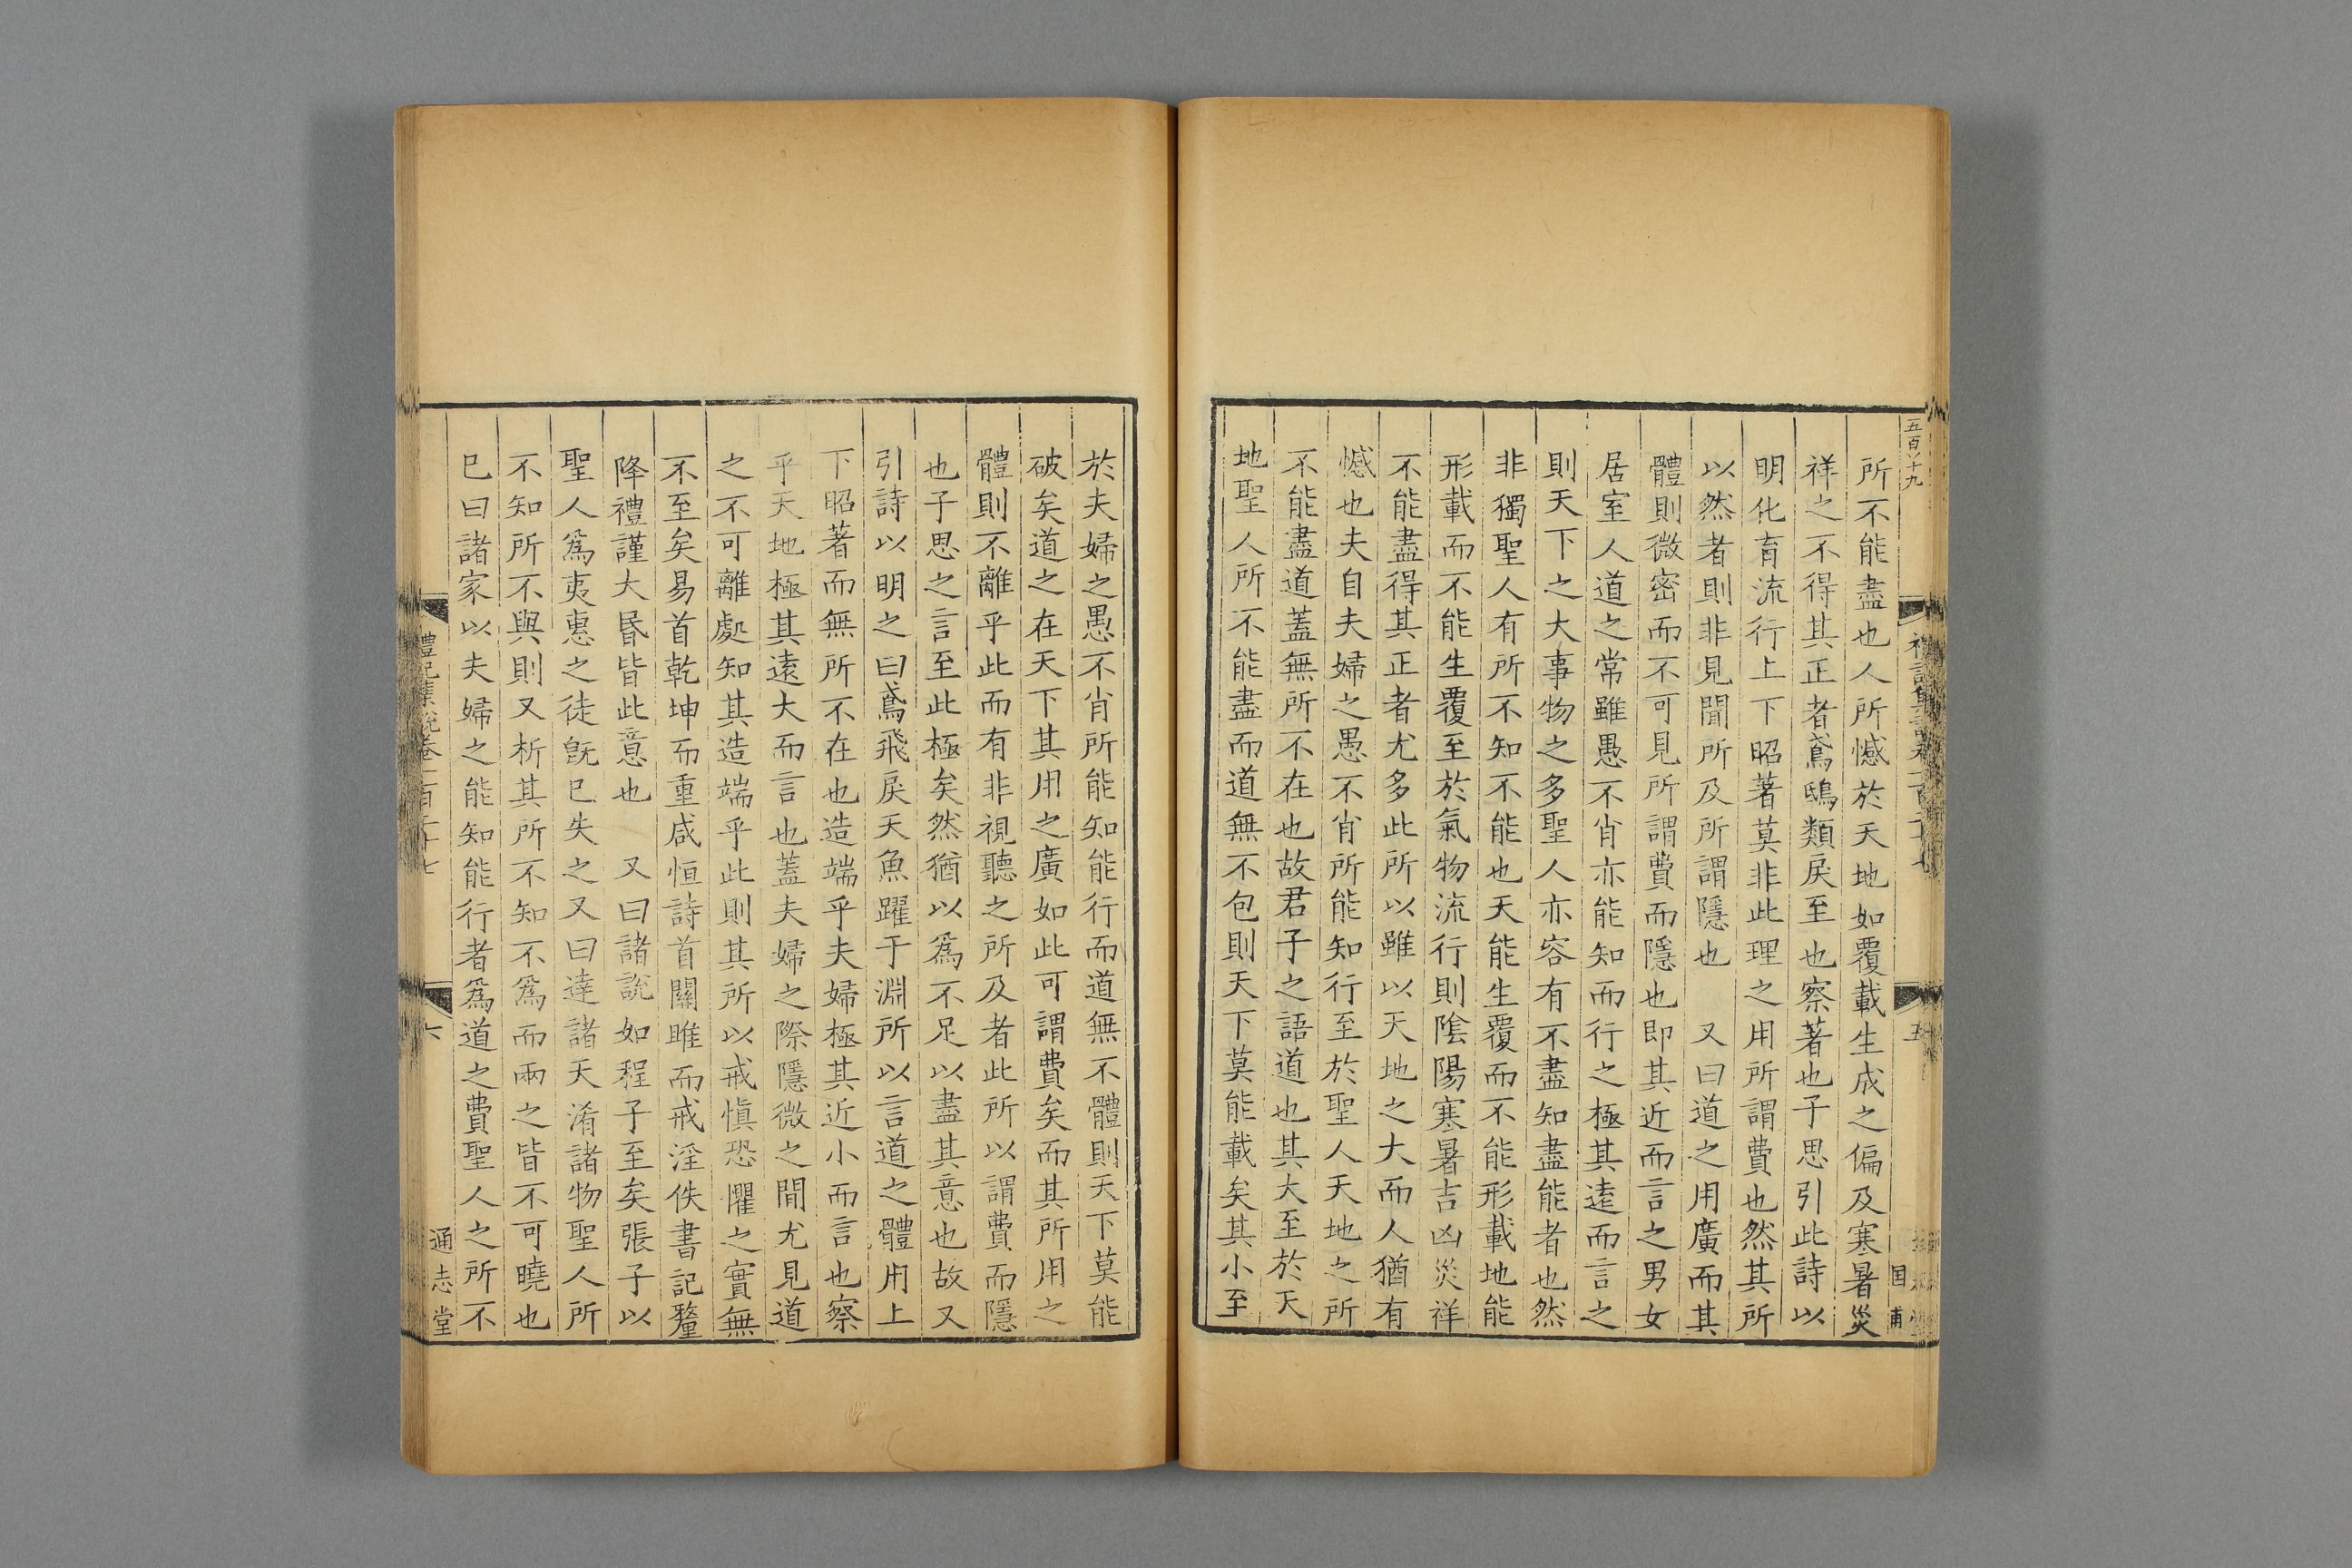 五百八十九
所不能盡也人所憾於天地如覆載生成之偏及寒暑災
祥之不得其正者鳶鴟類戾至也察著也子思引此詩以
明化育流行上下昭著莫非此理之用所謂費也然其所
以然者則非見聞所及所謂隱也 又曰道之用廣而其
體則微密而不可見所謂費而隱也即其近而言之男女
居室人道之常雖愚不肖亦能知而行之極其遠而言之
則天下之大事物之多聖人亦容有不盡知盡能者也然
非獨聖人有所不知不能也天能生覆而不能形載地能
形載而不能生覆至於氣物流行則陰陽寒暑吉凶災祥
不能盡得其正者尤多此所以雖以天地之大而人猶有
憾也夫自夫婦之愚不肖所能知行至於聖人天地之所
不能盡道蓋無所不在也故君子之語道也其大至於天
地聖人所不能盡而道無不包則天下莫能載矣其小至
於夫婦之愚不肖所能知能行而道無不體則天下莫能
破矣道之在天下其用之廣如此可謂費矣而其所用之
體則不離乎此而有非視聽之所及者此所以謂費而隱
也子思之言至此極矣然猶以爲不足以盡其意也故又
引詩以明之曰鳶飛戾天魚躍于淵所以言道之體用上
下昭著而無所不在也造端乎夫婦極其近小而言也察
乎天地極其遠大而言也蓋夫婦之際隱微之間尤見道
之不可離處知其造端乎此則其所以戒慎恐懼之實無
不至矣易首乾坤而重咸恒詩首關雎而戒淫佚書記釐
降禮謹大昏皆此意也 又曰諸說如程子至矣張子以
聖人爲夷惠之徒旣已失之又曰達諸天淆諸物聖人所
不知所不與則又析其所不知不爲而兩之皆不可曉也
已曰諸家以夫婦之能知能行者爲道之費聖人之所不
禮記集說卷一百二十七
六
通志堂